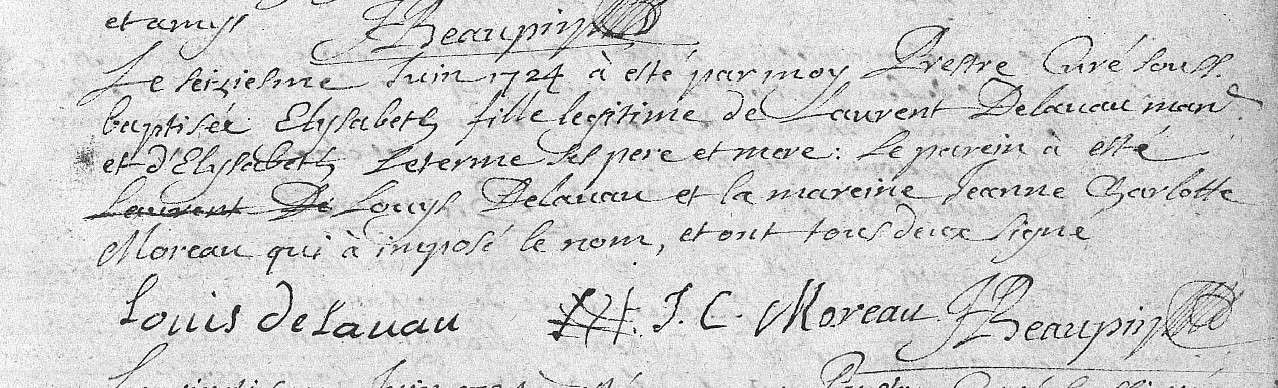 et amys JBeaupin
Le seiziesme Juin 1724 à esté par moy Prestre Curé souss.
baptisée Elysabeth fille legitime de Laurent Delauau mand.
et d'Elysabeth Leterme ses pere et mere : Le parein à esté
Laurent De Louys Delauau et la mareine Jeanne Charlotte
Moreau qui à imposé le nom, et ont tous deux signé
Louis delauau J. C. Moreau JBeaupin
Juin 1724